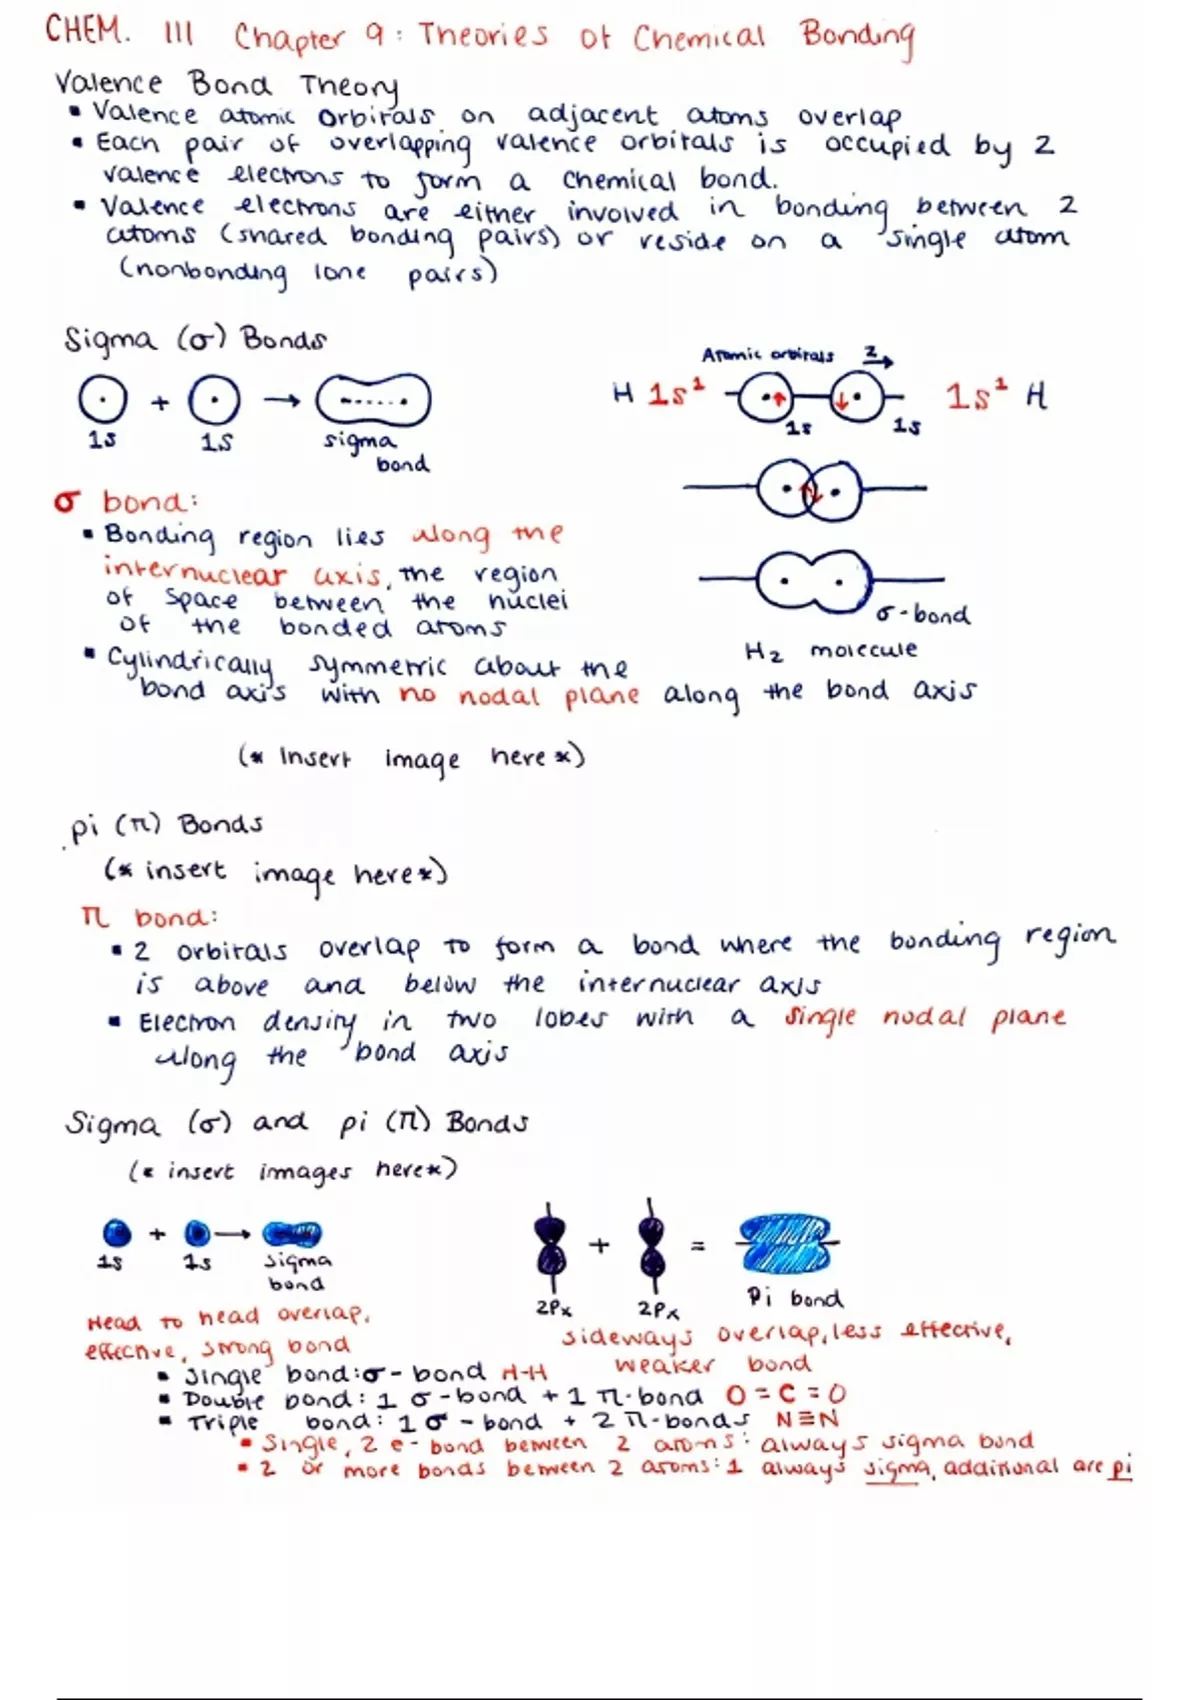 CHEM. 111 Chapter 9: Theories of Chemical Bonding
Valence Bond Theory
▪ Valence atomic orbitals on adjacent atoms overlap
▪ Each pair of overlapping valence orbitals is occupied by 2
valence electrons to form a chemical bond.
▪ Valence electrons are either involved in bonding between 2
atoms (shared bonding pairs) or reside on a single atom
(nonbonding lone pairs)
Sigma (σ) Bonds
1s + 1s → sigma bond
Atomic orbitals z→
H 1s¹ 1s¹ H
1s 1s
σ-bond
H₂ molecule
σ bond:
▪ Bonding region lies along the
internuclear axis, the region
of space between the nuclei
of the bonded atoms
▪ Cylindrically symmetric about the
bond axis with no nodal plane along the bond axis
(* Insert image here *)
pi (π) Bonds
(* insert image here *)
π bond:
▪ 2 orbitals overlap to form a bond where the bonding region
is above and below the internuclear axis
▪ Electron density in two lobes with a single nodal plane
along the bond axis
Sigma (σ) and pi (π) Bonds
(* insert images here *)
1s + 1s → sigma bond
2Px + 2Px = Pi bond
Head to head overlap,
effective, strong bond
sideways overlap, less effective,
weaker bond
▪ Single bond: σ-bond H-H
▪ Double bond: 1 σ-bond + 1 π-bond O=C=O
▪ Triple bond: 1 σ-bond + 2 π-bonds N≡N
▪ Single, 2 e- bond between 2 atoms: always sigma bond
▪ 2 or more bonds between 2 atoms: 1 always sigma, additional are pi